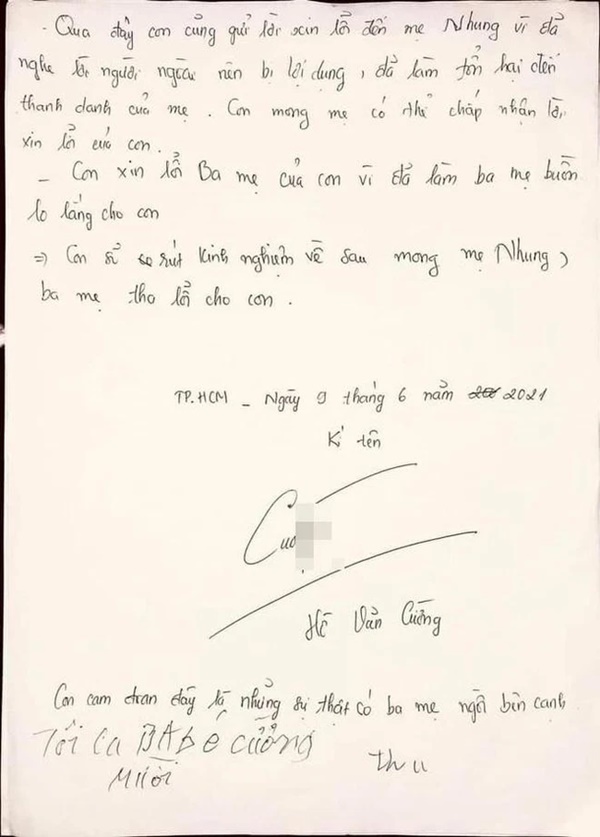 - Qua đây con củng gửi lời xin lổi đến mẹ Nhung vì đả
nghe lời người ngoài nên bị lợi dụng, đả làm tổn hại đến
thanh danh của mẹ. Con mong mẹ có thể chấp nhận lời
xin lổi của con.
_ Con xin lổi Ba mẹ của con vì đả làm ba mẹ buồn
lo lắng cho con
=> Con sẻ rút kinh nghiệm về sau mong mẹ Nhung,
ba mẹ tho lổ cho con.
TP.HCM _ Ngày 9 tháng 6 năm 2021
Kí tên
Hồ Văn Cường
Con cam đoan đây là nhửng sự thật có ba mẹ ngồi bên cạnh
Tôi La BA bé cường
MƯỜI
thu